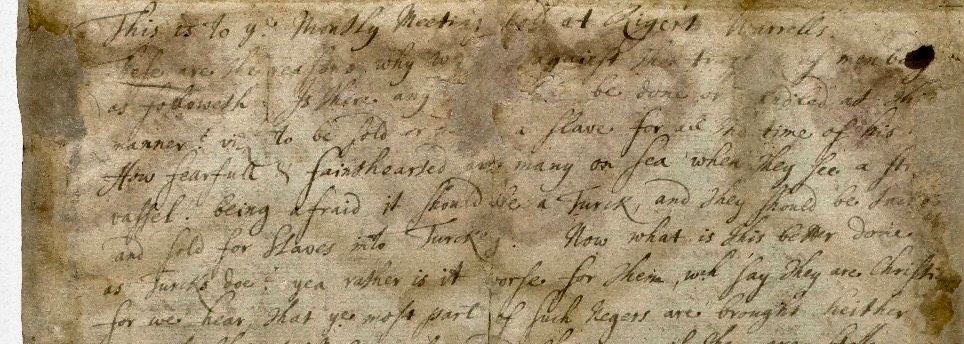 This is to ye Monthly Meeting held at Rigert Warrells.
These are the reasons why we against the traf men body
as followeth: Is there any be done or handled at this
manner? viz to be sold or a slave for all the time of his
How fearfull & fainthearted are many on sea when they see a str
vassel. being afraid it should be a Turck, and they should be tacken
and sold for Slaves into Turckey. Now what is this better done
as Turcks doe? yea rather is it worse for them, wch say they are Christi
for we hear, that ye most part of such Negers are brought heither